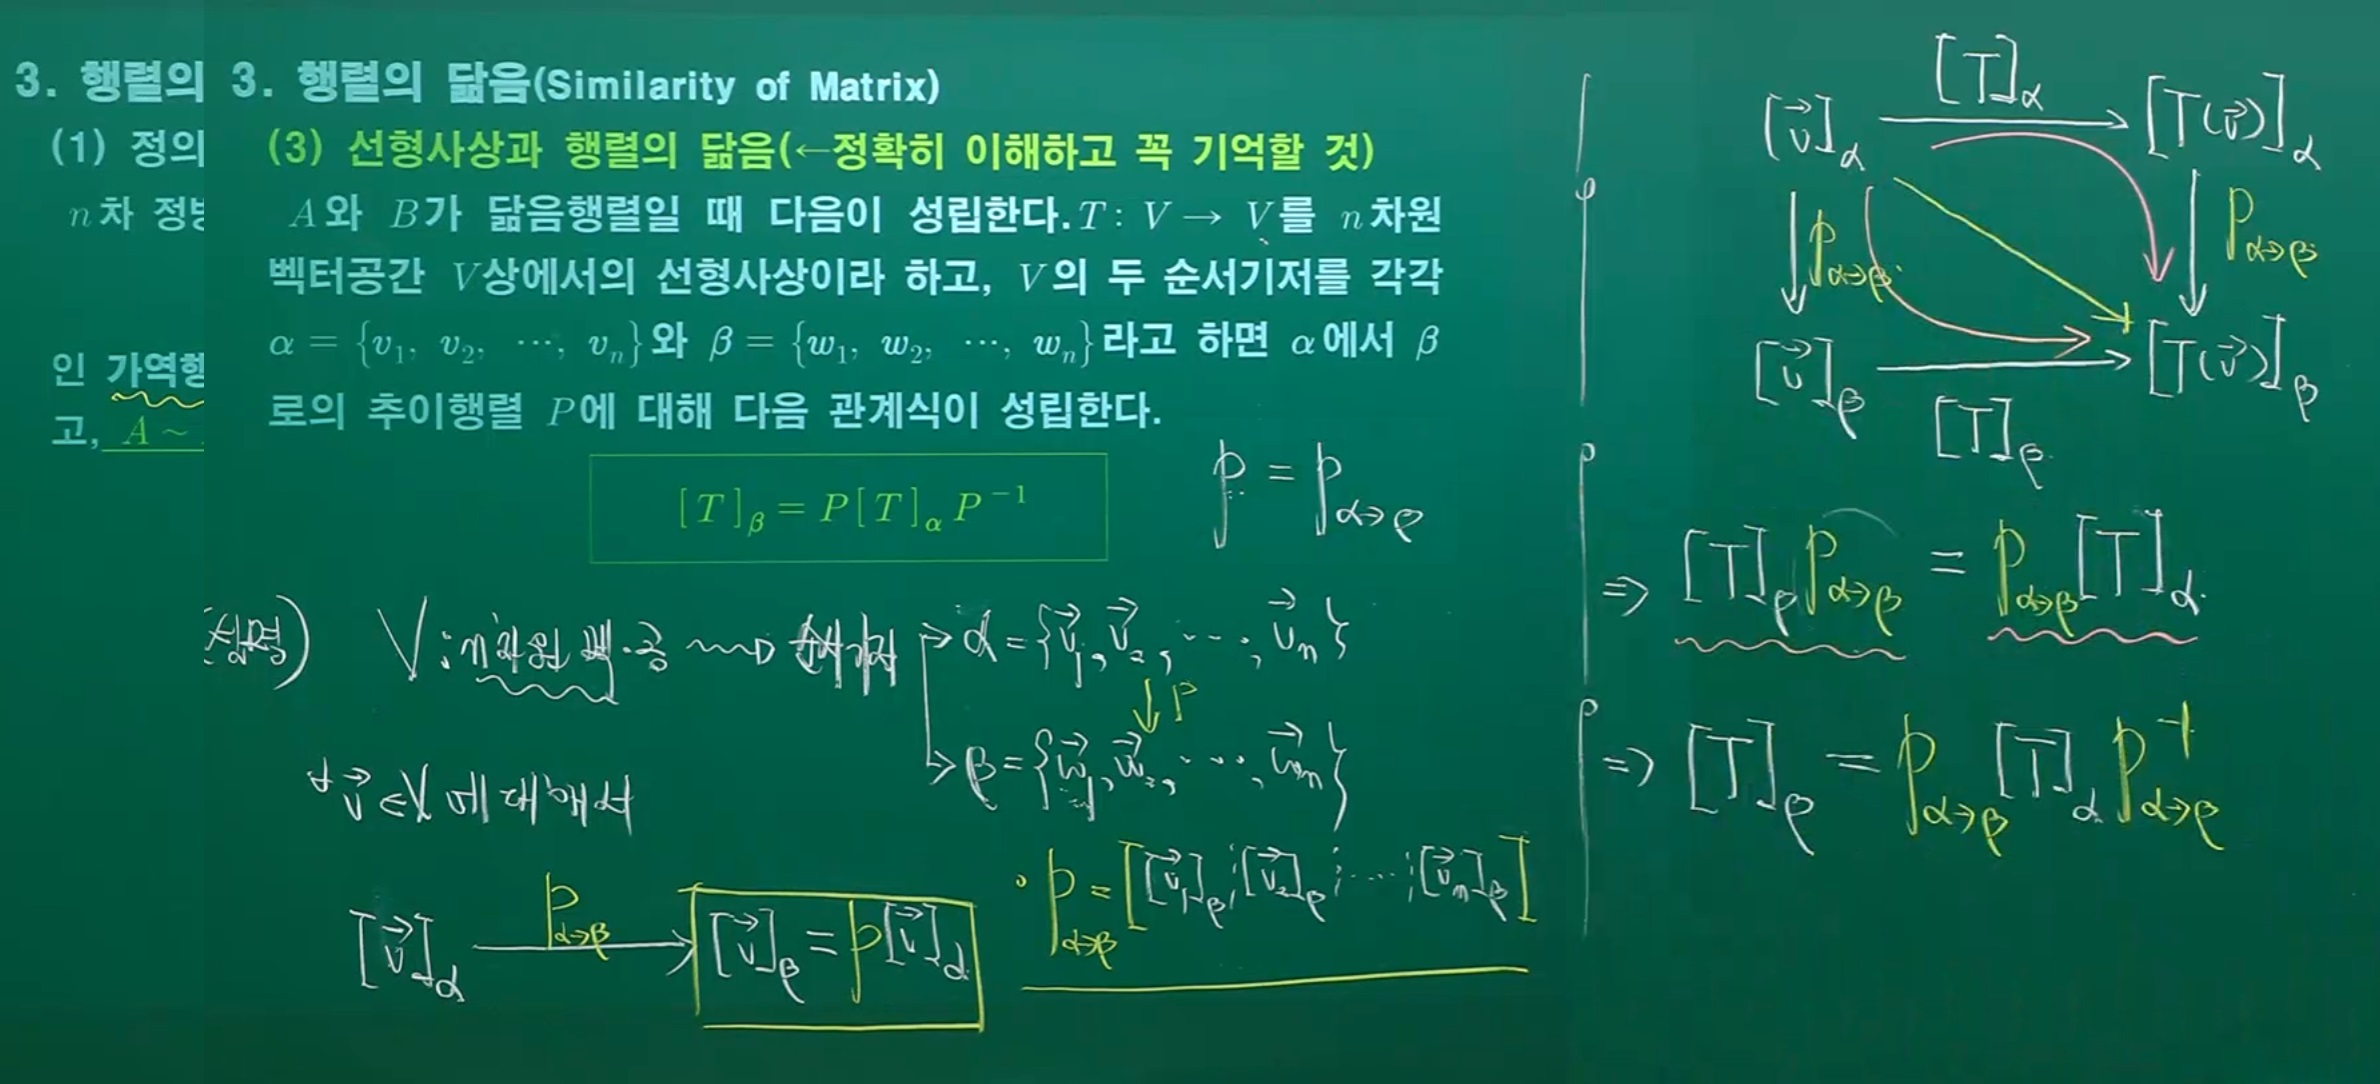 3. 행렬의
(1) 정의
n차 정방
인 가역행
고, A ~
3. 행렬의 닮음(Similarity of Matrix)
(3) 선형사상과 행렬의 닮음(←정확히 이해하고 꼭 기억할 것)
A와 B가 닮음행렬일 때 다음이 성립한다. T : V → V를 n차원
벡터공간 V상에서의 선형사상이라 하고, V의 두 순서기저를 각각
α = {v₁, v₂, ⋯, vₙ}와 β = {w₁, w₂, ⋯, wₙ}라고 하면 α에서 β
로의 추이행렬 P에 대해 다음 관계식이 성립한다.
[T]_β = P[T]_α P⁻¹
P = P_{α→β}
(설명) V : n차원 벡·공 ⇝ 순서기저 → α = {v⃗₁, v⃗₂, ⋯, v⃗ₙ}
↓ P
→ β = {w⃗₁, w⃗₂, ⋯, w⃗ₙ}
∀v⃗ ∈ V에 대해서
[v⃗]_α P_{α→β} → [v⃗]_β = P[v⃗]_α
∘ P_{α→β} = [[v⃗₁]_β ⋮ [v⃗₂]_β ⋮ ⋯ ⋮ [v⃗ₙ]_β]
[T]_α
[v⃗]_α → [T(v⃗)]_α
↓ P_{α→β} ↓ P_{α→β}
[v⃗]_β → [T(v⃗)]_β
[T]_β
⇒ [T]_β P_{α→β} = P_{α→β} [T]_α
⇒ [T]_β = P_{α→β} [T]_α P⁻¹_{α→β}